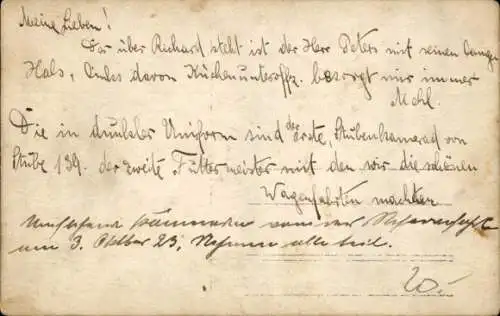 Meine Lieben!
Der über Richard steht ist der Herr Peters mit seinen langen
Hals, links davon Küchenunteroffz. besorgt mir immer
Mehl.
Die in dunkler Uniform sind der erste, Stubenkamerad von
Stube 139. der zweite Futtermeister mit den wir die schönen
Wagenfahrten machten
von der
am 3. Oktber 23, Nehmen alle teil.
20.-